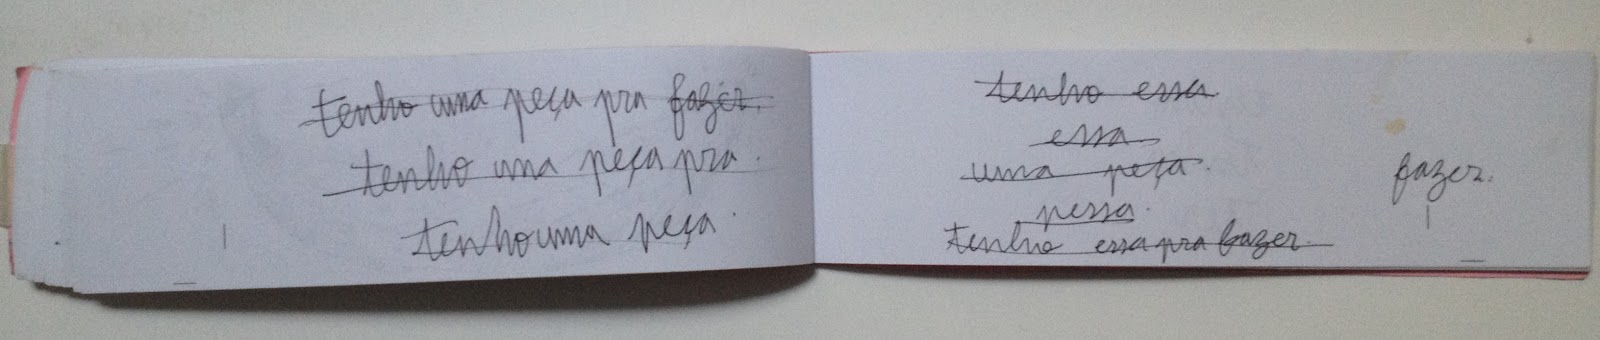 tenho uma peça pra fazer.
tenho uma peça pra.
tenho uma peça.
tenho essa
essa
uma peça.
pessa.
tenho essa pra fazer.
fazer.